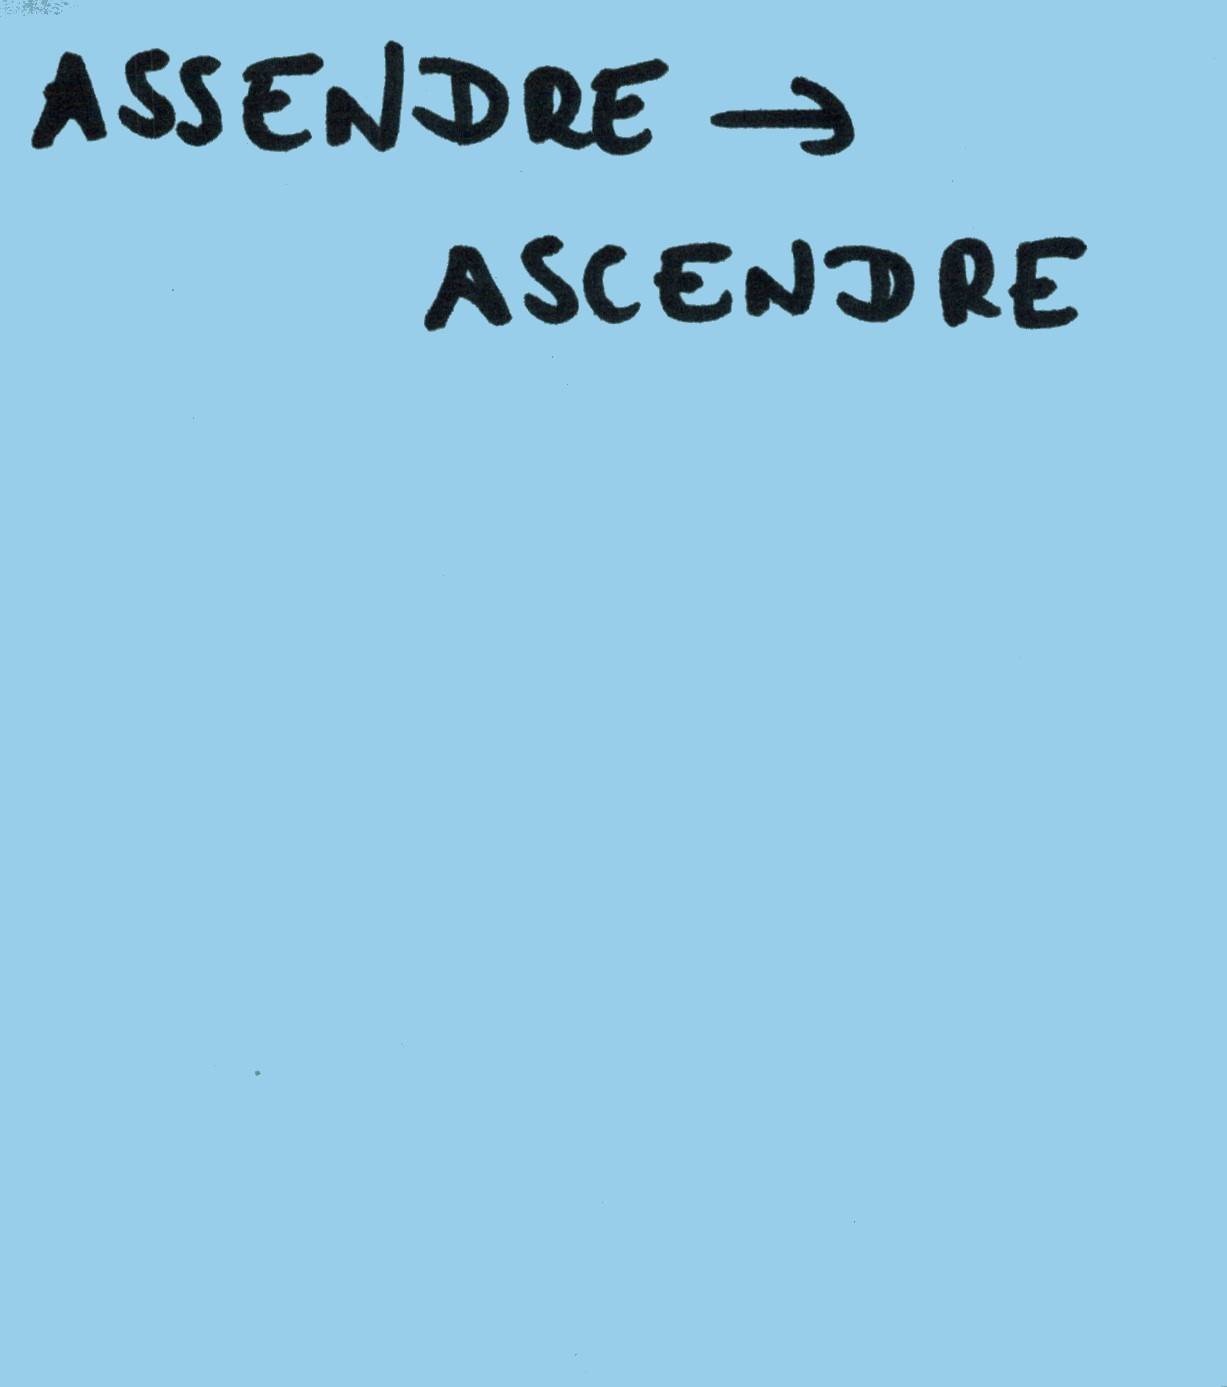 ASSENDRE →
ASCENDRE